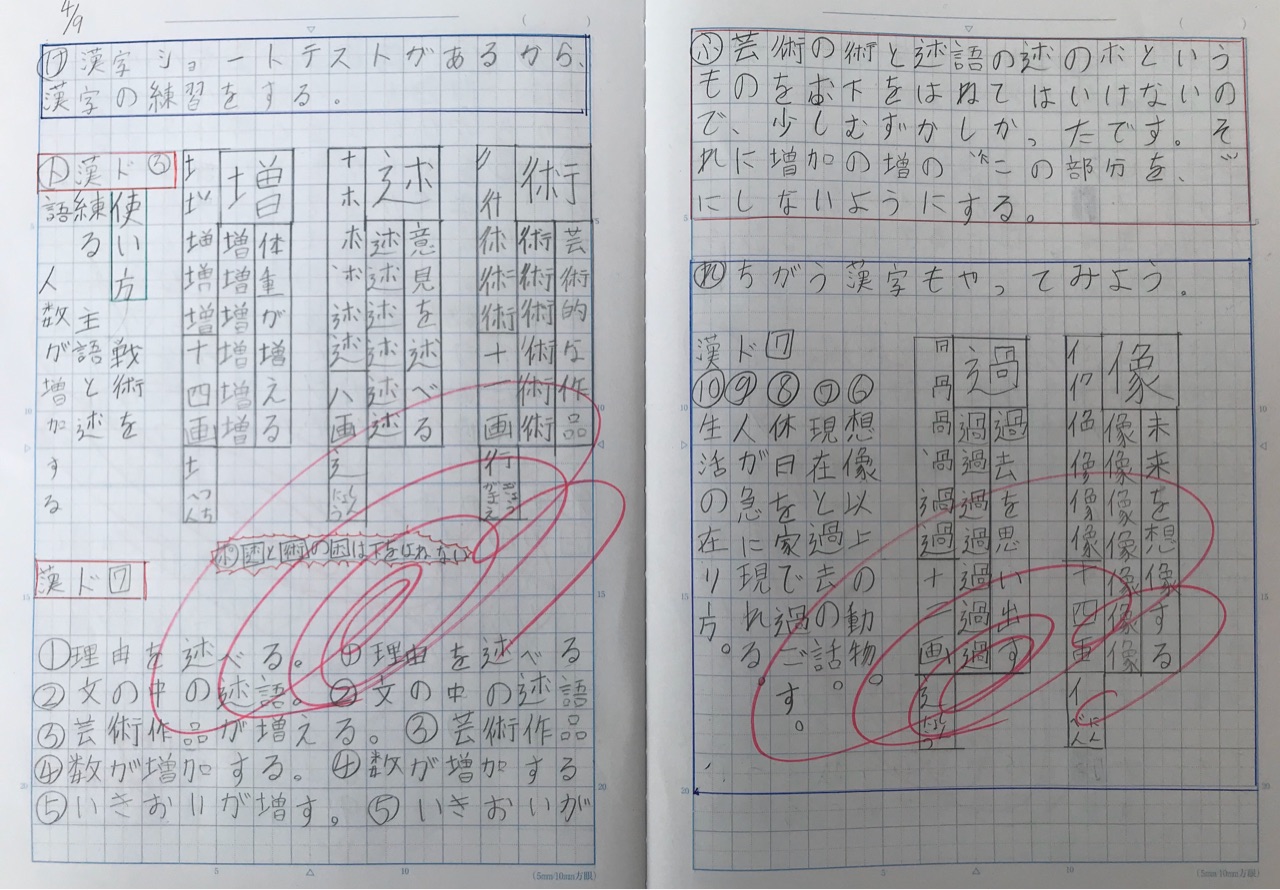 4/9
け 漢字ショートテストがあるから、
漢字の練習をする。
ト 漢ド ③
術
芸術的な作品
術術術術術術
十一画
行
ぎょう
がまえ
述
意見を述べる
述述述述述述
八画
しんにょう
増
体重が増える
増増増増増増
十四画
土
つちへん
使い方
戦術を
練る
主語と述
語
人数が増加する
ポ 述と術の朮は下をはねない
漢ド 7
①理由を述べる。①理由を述べる
②文の中の述語。②文の中の述語
③芸術作品が増える。③芸術作品
④数が増加する。④数が増加する
⑤いきおいが増す。⑤いきおいが
ふ 芸術の術と述語の述のホという
ものを下をはねてはいけないの
で、少しむずかしかったです。そ
れに増加の増の この部分を、
にしないようにする。
れ ちがう漢字もやってみよう。
像
未来を想像する
像像像像像像
十四画
イ
にんべん
過
過去を思い出す
過過過過過過
十二画
しんにょう
漢ド 7
⑥想像以上の動物。
⑦現在と過去の話。
⑧休日を家で過ごす。
⑨人が急に現れる。
⑩生活の在り方。
5
10
15
20
(5mm・10mm方眼)
5
10
15
20
(5mm・10mm方眼)